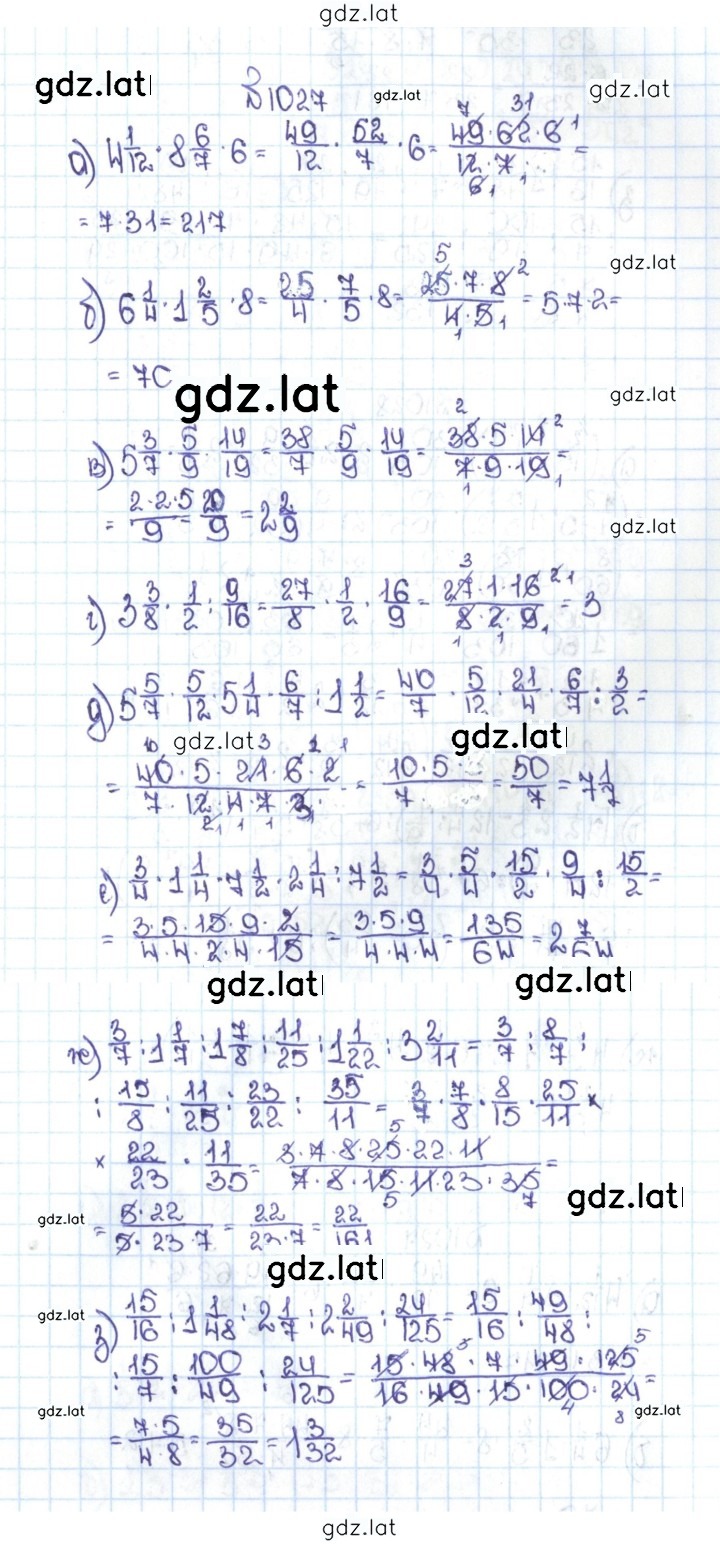 gdz.lat
gdz.lat
№1027
gdz.lat
gdz.lat
а) 4 1/12 · 8 6/7 · 6 = 49/12 · 62/7 · 6 = 49·62·6 / 12·7 =
= 7·31 = 217
gdz.lat
б) 6 1/4 · 1 2/5 · 8 = 25/4 · 7/5 · 8 = 25·7·8 / 4·5 = 5·7·2 =
= 70
gdz.lat
gdz.lat
в) 5 3/7 · 5/9 · 14/19 = 38/7 · 5/9 · 14/19 = 38·5·14 / 7·9·19 =
= 2·2·5 / 9 = 20/9 = 2 2/9
gdz.lat
г) 3 3/8 · 1/2 : 9/16 = 27/8 · 1/2 · 16/9 = 27·1·16 / 8·2·9 = 3
д) 5 5/7 · 5/12 · 5 1/4 · 6/7 : 1 1/2 = 40/7 · 5/12 · 21/4 · 6/7 : 3/2 =
gdz.lat
gdz.lat
= 40·5·21·6·2 / 7·12·4·7·3 = 10·5 / 7 = 50/7 = 7 1/7
е) 3/4 · 1 1/4 · 7 1/2 · 2 1/4 : 7 1/2 = 3/4 · 5/4 · 15/2 · 9/4 : 15/2 =
= 3·5·15·9·2 / 4·4·2·4·15 = 3·5·9 / 4·4·4 = 135/64 = 2 7/64
gdz.lat
gdz.lat
ж) 3/7 : 1 1/7 : 1 7/8 : 11/25 : 1 1/22 : 3 2/11 = 3/7 : 8/7 :
: 15/8 : 11/25 : 23/22 : 35/11 = 3/7 · 7/8 · 8/15 · 25/11 ×
× 22/23 · 11/35 = 3·7·8·25·22·11 / 7·8·15·11·23·35 =
gdz.lat
gdz.lat
= 5·22 / 5·23·7 = 22 / 23·7 = 22/161
gdz.lat
gdz.lat
з) 15/16 : 1 1/48 : 2 1/7 : 2 2/49 : 24/125 = 15/16 : 49/48 :
: 15/7 : 100/49 : 24/125 = 15·48·7·49·125 / 16·49·15·100·24 =
gdz.lat
gdz.lat
= 7·5 / 4·8 = 35/32 = 1 3/32
gdz.lat